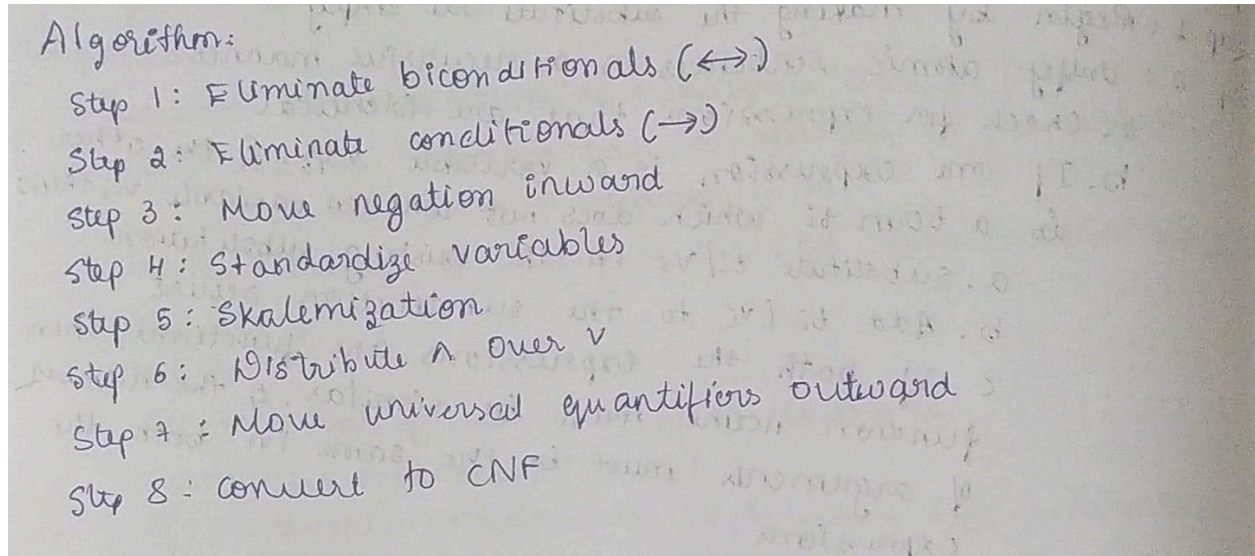 Algorithm:
Step 1: Eliminate biconditionals (↔)
Step 2: Eliminate conditionals (→)
Step 3: Move negation inward
Step 4: Standardize variables
Step 5: Skalemization
Step 6: Distribute ∧ over ∨
Step 7: Move universal quantifiers outward
Step 8: convert to CNF